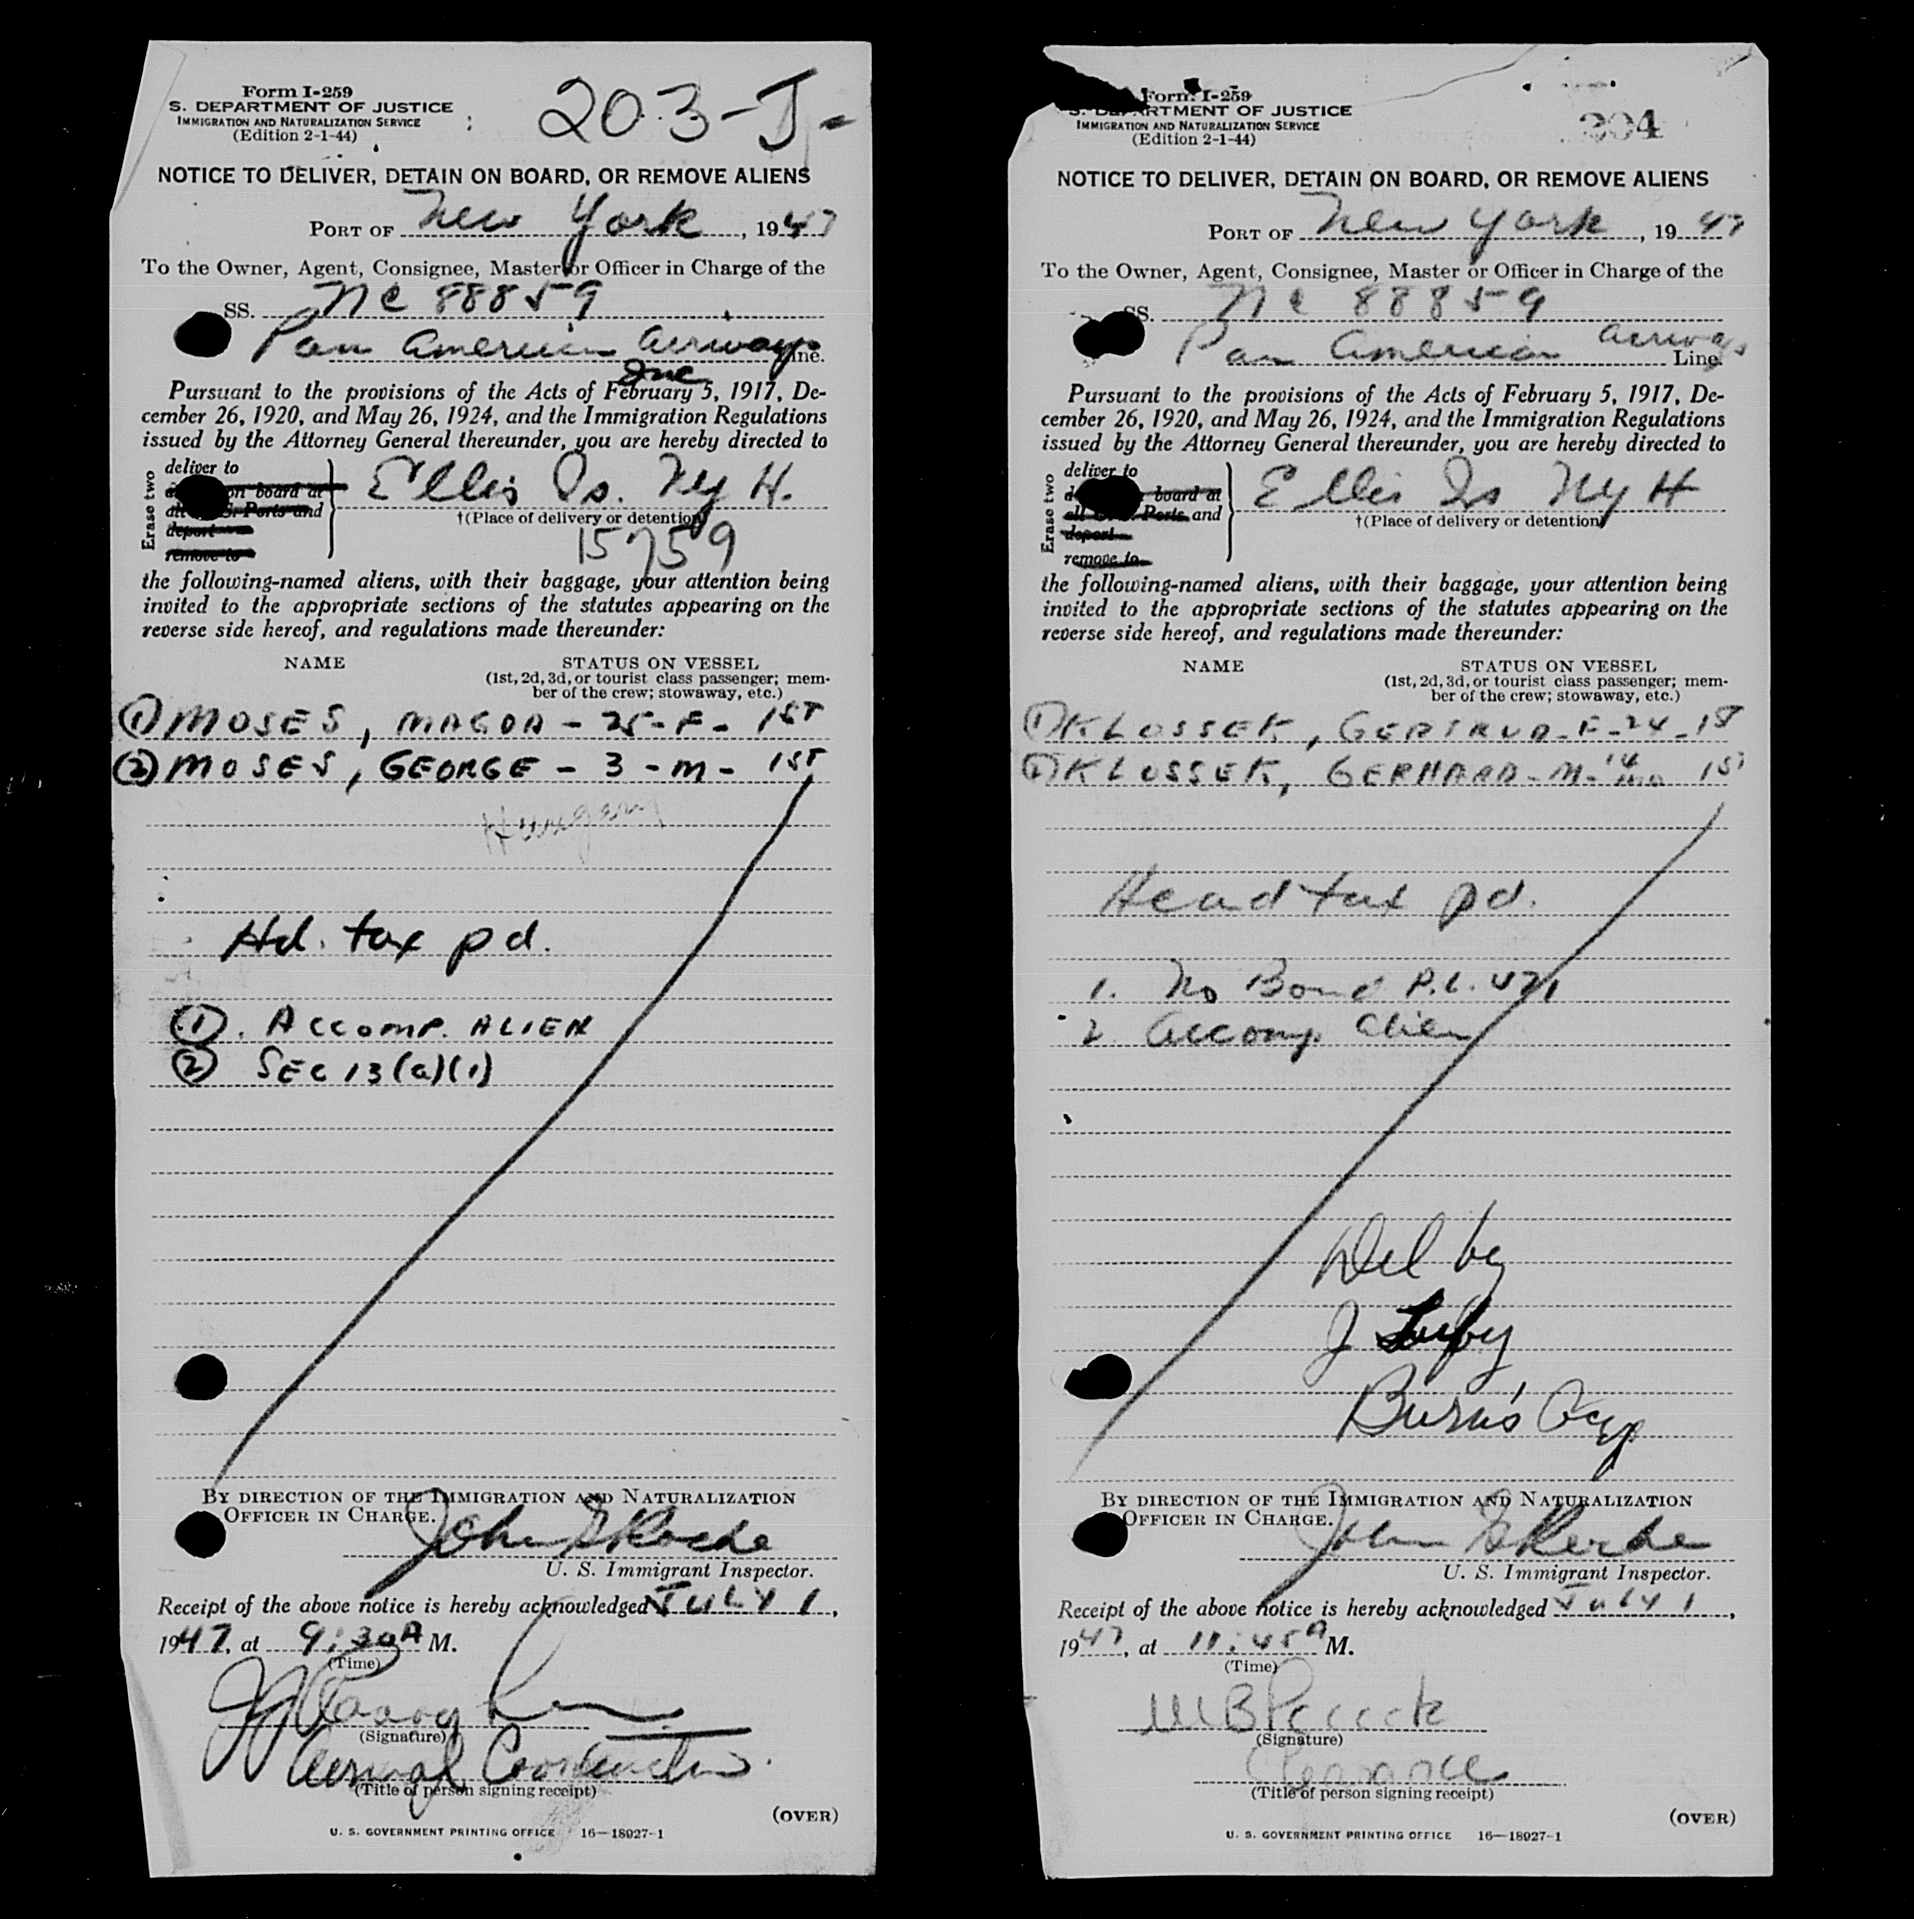 Form I-259
S. DEPARTMENT OF JUSTICE
IMMIGRATION AND NATURALIZATION SERVICE
(Edition 2-1-44)
203-J-
NOTICE TO DELIVER, DETAIN ON BOARD, OR REMOVE ALIENS
PORT OF New York, 1947
To the Owner, Agent, Consignee, Master or Officer in Charge of the
SS. NC 88859
Pan American Airways Line.
Inc
Pursuant to the provisions of the Acts of February 5, 1917, De-
cember 26, 1920, and May 26, 1924, and the Immigration Regulations
issued by the Attorney General thereunder, you are hereby directed to
Erase two
deliver to
on board at
all U.S. Ports and
deport
remove to
Ellis Is. NY H.
†(Place of delivery or detention)
15759
the following-named aliens, with their baggage, your attention being
invited to the appropriate sections of the statutes appearing on the
reverse side hereof, and regulations made thereunder:
NAME STATUS ON VESSEL
(1st, 2d, 3d, or tourist class passenger; mem-
ber of the crew; stowaway, etc.)
(1) MOSES, MAGDA - 25 - F - 1ST
(2) MOSES, GEORGE - 3 - M - 1ST
Hungary
Hd. tax pd.
(1). ACCOMP. ALIEN
(2) SEC 13(a)(1)
BY DIRECTION OF THE IMMIGRATION AND NATURALIZATION
OFFICER IN CHARGE.
John Roche
U. S. Immigrant Inspector.
Receipt of the above notice is hereby acknowledged JULY 1,
1947, at 9:30 A M.
(Time)
(Signature)
(Title of person signing receipt)
(OVER)
U. S. GOVERNMENT PRINTING OFFICE 16—18027-1
Form I-259
S. DEPARTMENT OF JUSTICE
IMMIGRATION AND NATURALIZATION SERVICE
(Edition 2-1-44)
204
NOTICE TO DELIVER, DETAIN ON BOARD, OR REMOVE ALIENS
PORT OF New York, 1947
To the Owner, Agent, Consignee, Master or Officer in Charge of the
SS. NC 88859
Pan American Airways Line
Pursuant to the provisions of the Acts of February 5, 1917, De-
cember 26, 1920, and May 26, 1924, and the Immigration Regulations
issued by the Attorney General thereunder, you are hereby directed to
Erase two
deliver to
board at
all Ports and
deport
remove to
Ellis Is NY H
†(Place of delivery or detention)
the following-named aliens, with their baggage, your attention being
invited to the appropriate sections of the statutes appearing on the
reverse side hereof, and regulations made thereunder:
NAME STATUS ON VESSEL
(1st, 2d, 3d, or tourist class passenger; mem-
ber of the crew; stowaway, etc.)
(1) KLOSSEK, GERTRUD - F - 24 - 1ST
(2) KLOSSEK, GERHARD - M - 14 mo 1ST
Head tax pd.
1. No Bond P.L. 471
2 Accomp. Alien
Del by
J
Burns Agy
BY DIRECTION OF THE IMMIGRATION AND NATURALIZATION
OFFICER IN CHARGE.
John Roche
U. S. Immigrant Inspector.
Receipt of the above notice is hereby acknowledged July 1,
1947, at 11:45 A M.
(Time)
(Signature)
(Title of person signing receipt)
(OVER)
U. S. GOVERNMENT PRINTING OFFICE 16—18027-1